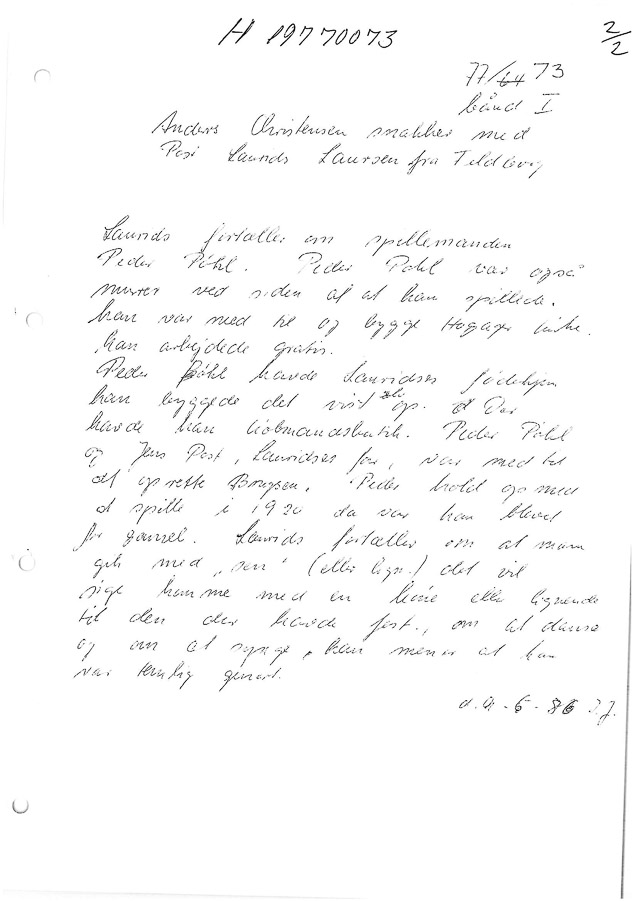 H 19770073
2/2
77/64 73
bånd I
Anders Christensen snakker med
Post Laurids Laursen fra
Laurids fortæller om spillemanden
Peder Pøhl. Peder Pøhl var også
murer ved siden af at han spillede.
han var med til og bygge Hogager kirke.
han arbejdede gratis.
Peder Pøhl havde Lauridses fødehjem
han byggede det vist selv op. Der
havde han købmandsbutik. Peder Pøhl
og Jens Post, Lauridses far, var med til
at oprette Brugsen. Peder holdt op med
at spille i 1920 da var han blevet
for gammel. Laurids fortæller om at man
gik med "sen" (eller lign.) det vil
sige komme med en eller lignende
til den der havde fest., om at danse
og om at synge, han mener at han
var temlig genert.
d. 9-6-86 I.J.